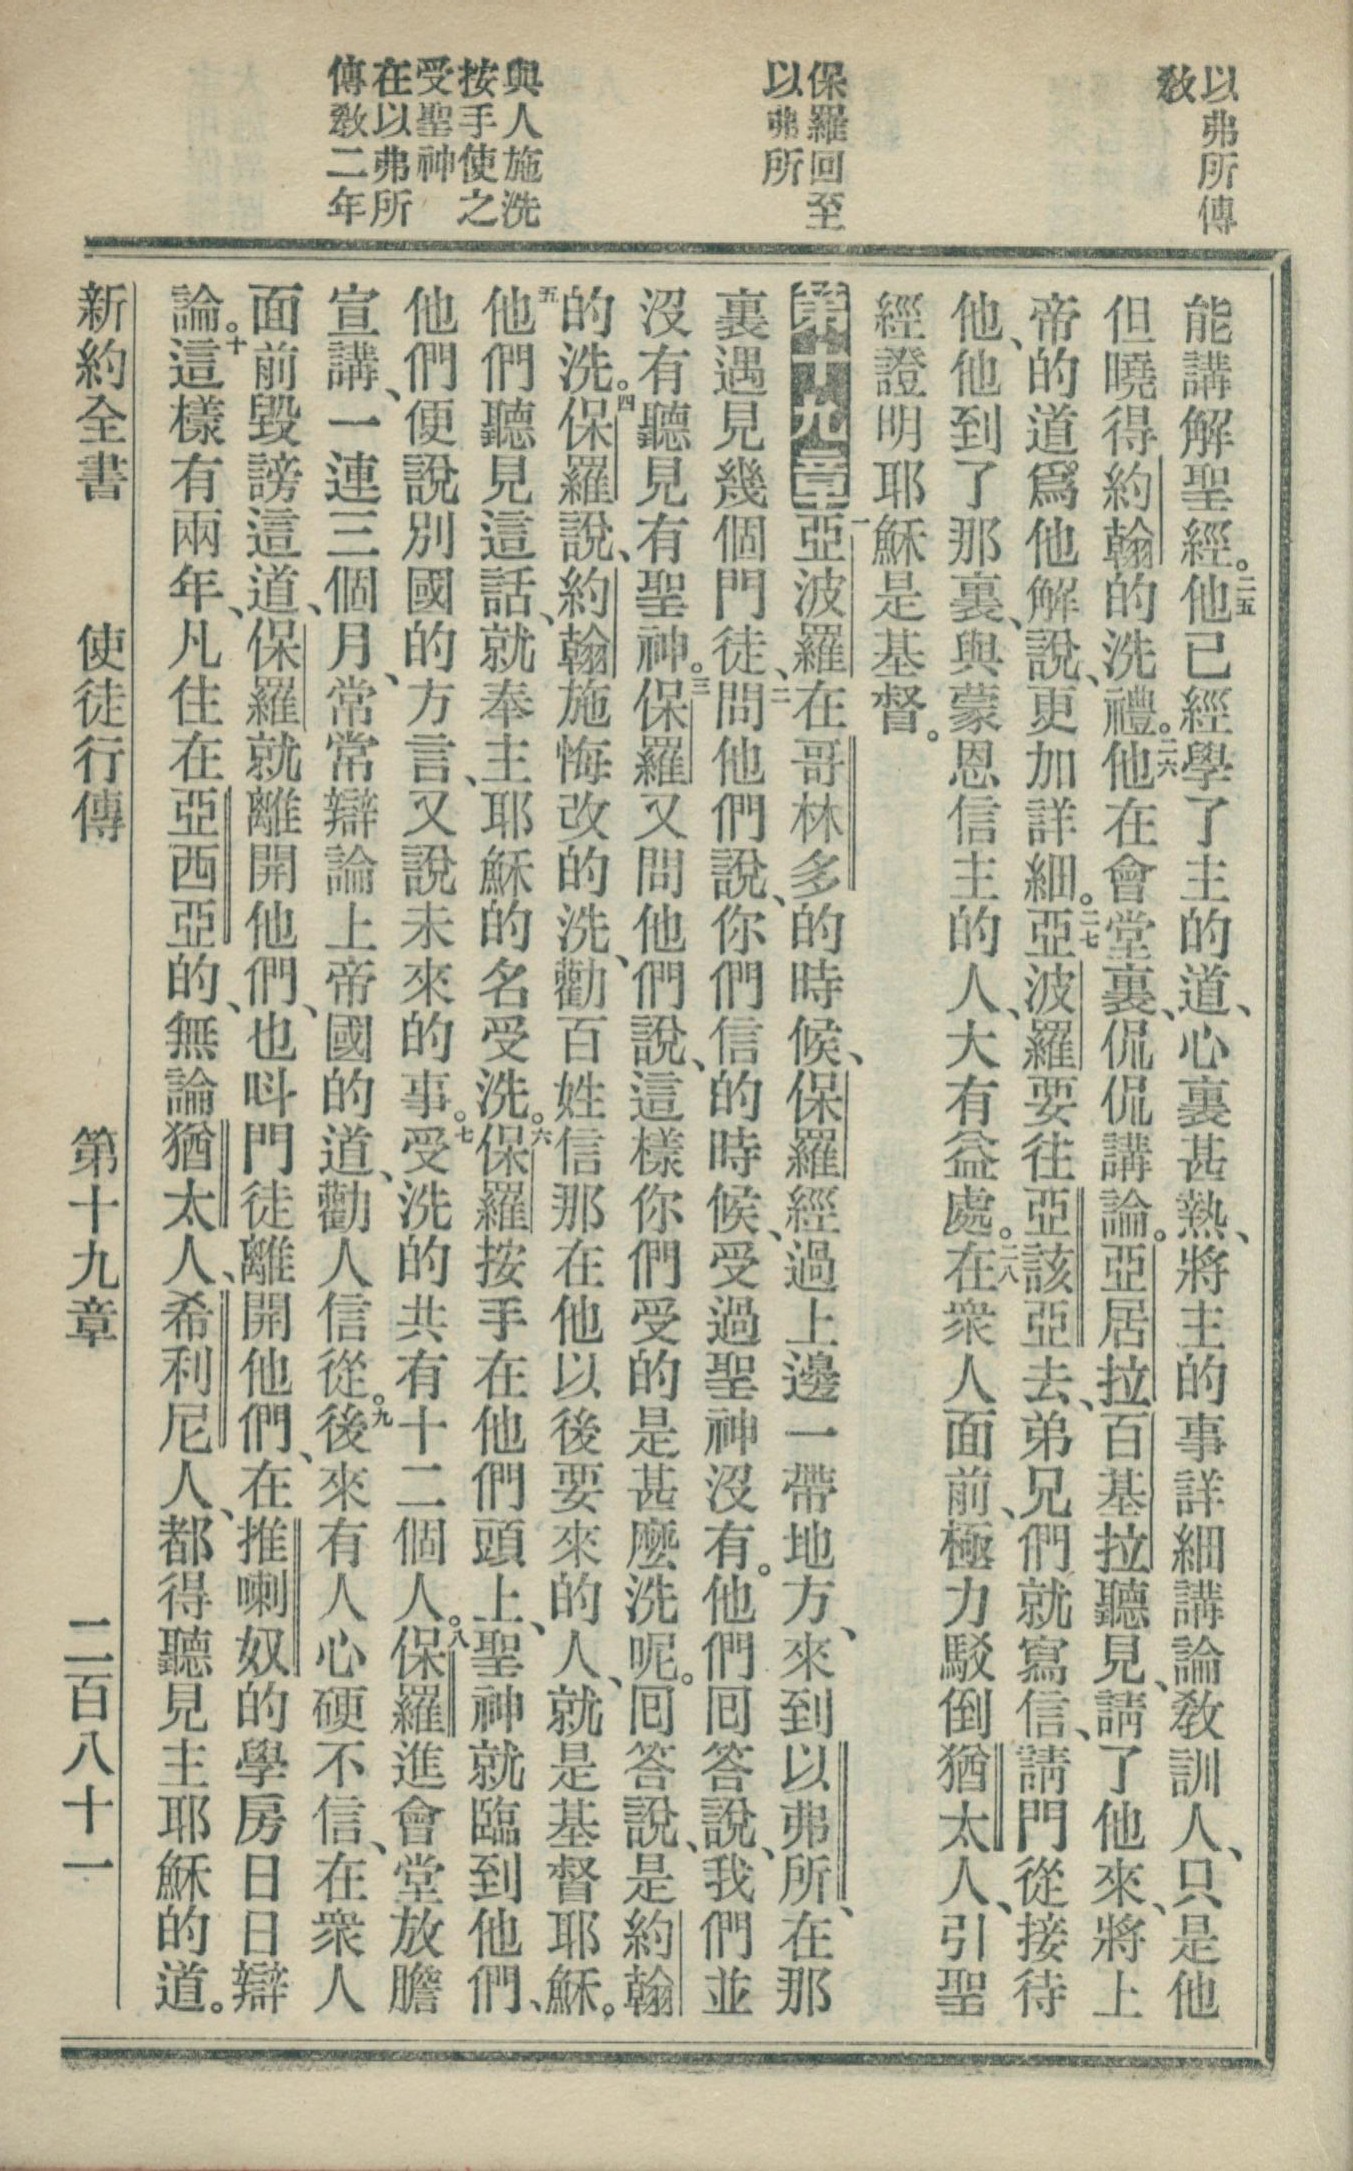 以弗所傳
教
保羅回至
以弗所
與人施洗
按手使之
受聖神
在以弗所
傳教二年
能講解聖經。二五他已經學了主的道、心裏甚熱、將主的事詳細講論教訓人、只是他
但曉得約翰的洗禮。二六他在會堂裏、侃侃講論。亞居拉百基拉聽見、請了他來、將上
帝的道爲他解說、更加詳細。二七亞波羅要往亞該亞去、弟兄們就寫信、請門徒接待
他、他到了那裏、與蒙恩信主的人、大有益處。二八在衆人面前、極力駁倒猶太人、引聖
經證明耶穌是基督。
第十九章 一亞波羅在哥林多的時候、保羅經過上邊一帶地方、來到以弗所、在那
裏遇見幾個門徒、二問他們說、你們信的時候、受過聖神沒有。他們囘答說、我們並
沒有聽見有聖神。三保羅又問他們說、這樣你們受的是甚麼洗呢。囘答說、是約翰
的洗。四保羅說、約翰施悔改的洗、勸百姓信那在他以後要來的人、就是基督耶穌。
五他們聽見這話、就奉主耶穌的名受洗。六保羅按手在他們頭上、聖神就臨到他們、
他們便說別國的方言、又說未來的事。七受洗的共有十二個人。八保羅進會堂放膽
宣講、一連三個月、常常辯論上帝國的道、勸人信從。九後來有人心硬不信、在衆人
面前毀謗這道、保羅就離開他們、也呌門徒離開他們、在推喇奴的學房日日辯
論。十這樣有兩年、凡住在亞西亞的、無論猶太人、希利尼人、都得聽見主耶穌的道。
新約全書 使徒行傳 第十九章 二百八十一